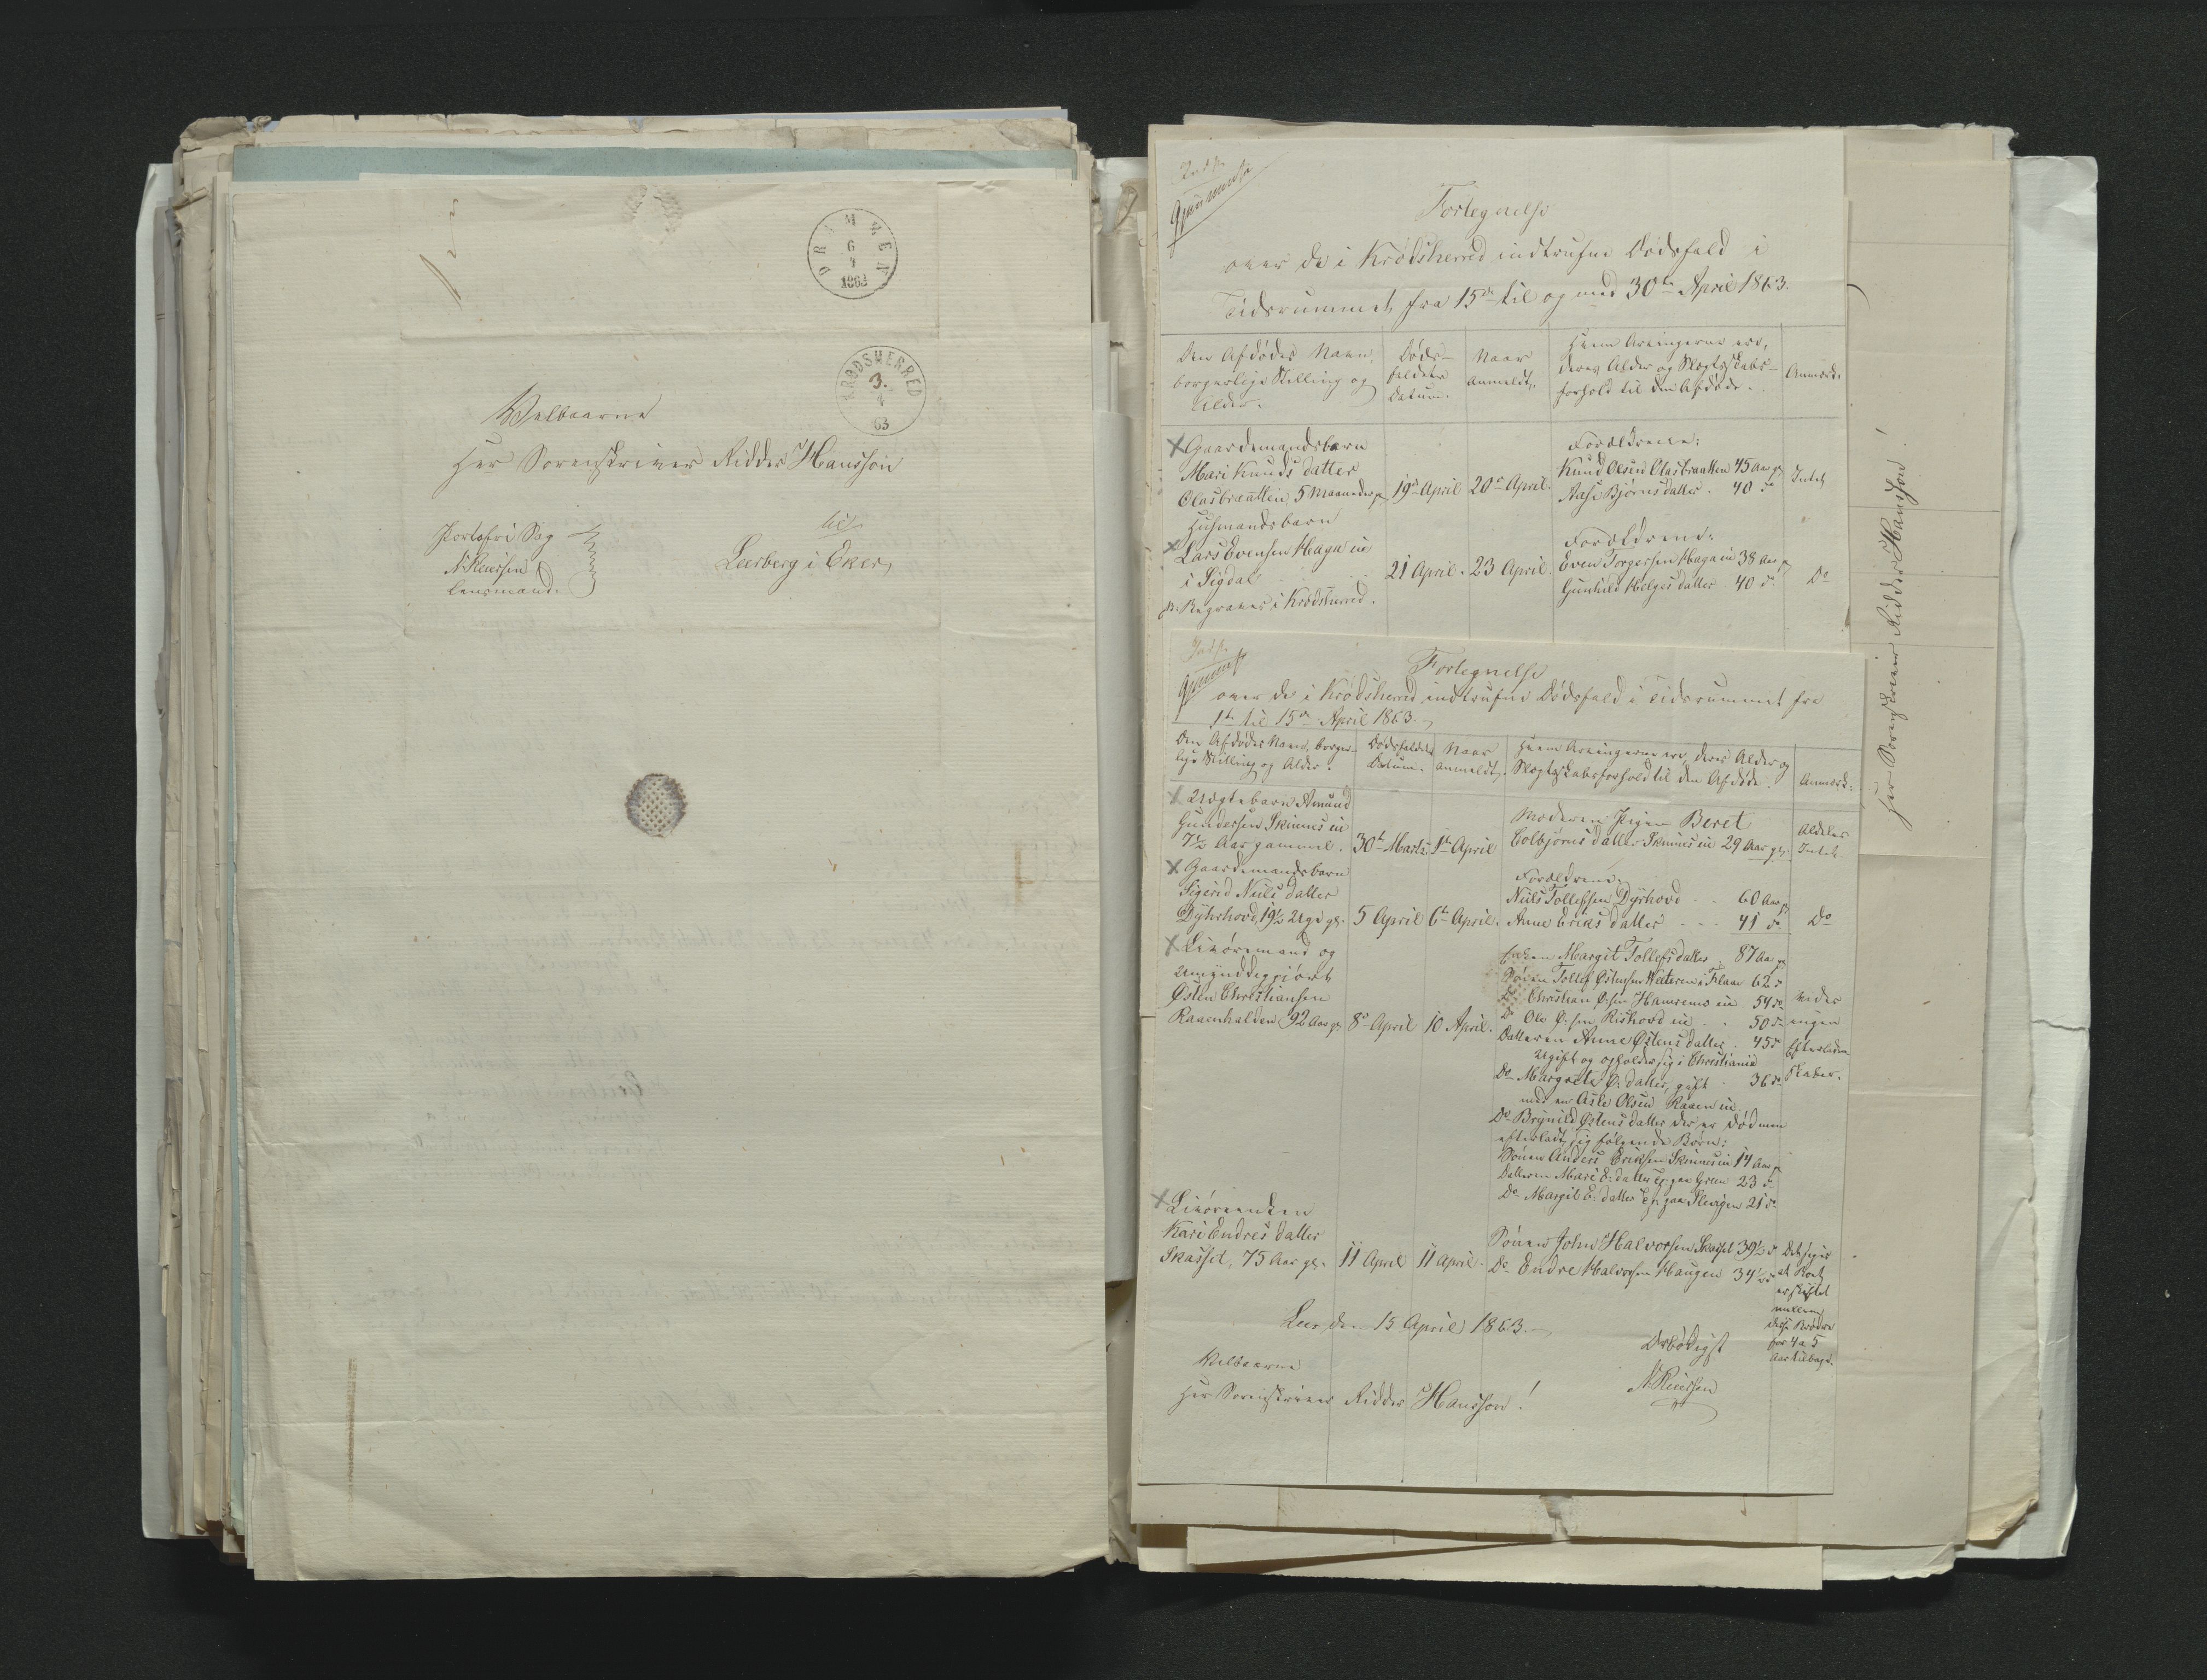 DRAMMEN
6
4
1863
KRØDSHERRED
3.
4
63
Velbaarne
Herr Sorenskriver Ridder Hansson
til
Leerberg i Eker,
Portofri Sag
N. Reiersen
Lensmand.
Indf.
Fortegnelse
over de i Krødsherred indtrufne Dødsfald i
Tidsrummet fra 15de til og med 30te April 1863.
Den Afdødes Navn, borgerlige Stilling og Alder.
Døds-faldets Datum.
Naar anmeldt.
Hvem Arvingerne ere, deres Alder og Slægtskabs-forhold til den Afdøde.
Anmærk:
Gaardmandsbarn
Mari Knudsdatter
Olasbraatten, 5 Maaneder gl.
19de April
20de April.
Forældrene:
Knud Olsen Olasbraatten 45 Aar gl
Aase Bjørnsdatter. 40 do
Intet
Husmandsbarn
Lars Evensen Hagaeie
i Sigdal
NB. Begraves i Krødsherred.
21 April.
23 April.
Forældrene:
Even Torgersen Hagaeie 38 Aar gl
Gunhild Helgesdatter 40 do.
Do
Herr Sorenskriver Ridder Hansson!
Indf.
Fortegnelse
over de i Krødsherred indtrufne Dødsfald i Tidsrummet fra
1te til 15de April 1863.
Den Afdødes Navn, borger-
lige Stilling og Alder.
Dødsfaldets
Datum.
Naar
anmeldt.
Hvem Arvingerne ere, deres Alder og
Slægtskabsforhold til den Afdøde.
Anmærk:
Uægte barn Amund
Gundersen Skinneseie
7½ Aar gammel.
30te Marts.
1te April
Moderen Pigen Beret
Colbjørnsdatter Skinneseie 29 Aar gl.
Aldeles
Intet
Gaardmandsbarn
Sigrid Nielsdatter
Dyhrhovd, 19½ Uge gl.
5 April
6te April.
Forældrene:
Niels Tollefsen Dyrhovd 60 Aar gl
Anne Eriksdatter 41 do
Do
Livøremand og
Umyndiggjort
Østen Christiansen
Raaenhalden 92 Aar gl
8de April
10 April.
Enken Margit Tollefsdatter 87 Aar gl
Sønen Tollef Østensen i Flaae 62 do
Do Christian Ø:sen Hamremoeie 54 do
Do Ole Ø:sen Rishovdeie 50 do
Datteren Anne Østensdatter 45 do
Ugift og opholder sig i Christiania
Do Margrete Ø:datter, gift 36 do
med en Aslé Olsen Raaeneie
Do Brynild Østensdatter der er død men
efterladt sig følgende Børn:
Sønen Anders Eriksen Skinneseie 14 Aar gl
Datteren Mari E:datter paa Green 23 do
Do Margit E:datter paa 21 do
Eider
ingen
Efterladen
skaber.
Livøreenken
Kari Endresdatter
Skasset, 75 Aar gl.
11 April
11 April.
Sønen John Halvorsen Skasset 39½ do
Do Endre Halvorsen Haugen 34½ do
Det siges
at Boet
er skiftet
mellem
disse Brødre
for 4 a 5
Aar tilbage.
Leer den 15 April 1863.
Ærbødigst
N. Reiersen
Velbaarne
Herr Sorenskriver Ridder Hansson!